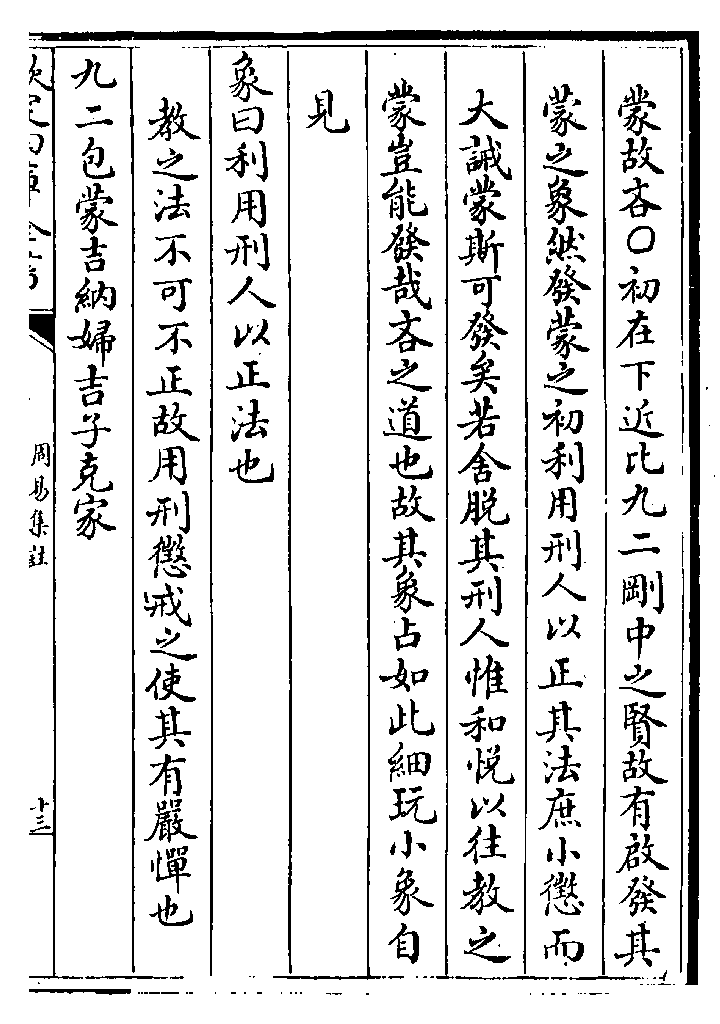 蒙故吝〇初在下近比九二剛中之賢故有啟發其
蒙之象然發蒙之初利用刑人以正其法庶小懲而
大誡蒙斯可發矣若舍脫其刑人惟和悅以往教之
蒙豈能發哉吝之道也故其象占如此細玩小象自
見
象曰利用刑人以正法也
教之法不可不正故用刑懲戒之使其有嚴憚也
九二包蒙吉納婦吉子克家
周易集註
十三